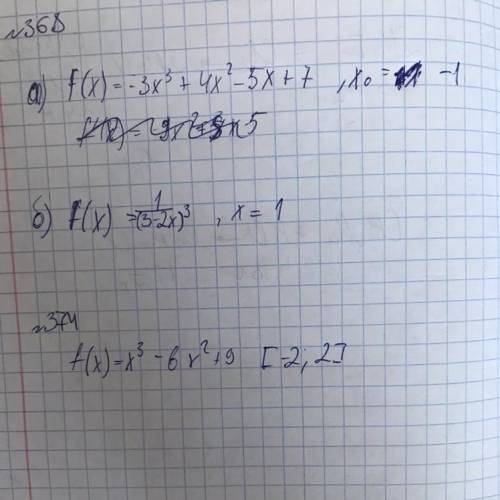 №368
а) f(x) = -3x³ + 4x² - 5x + 7 , x₀ = -1
б) f(x) = 1/(3-2x)³ , x = 1
№374
f(x) = x³ - 6x² + 9 [-2; 2]